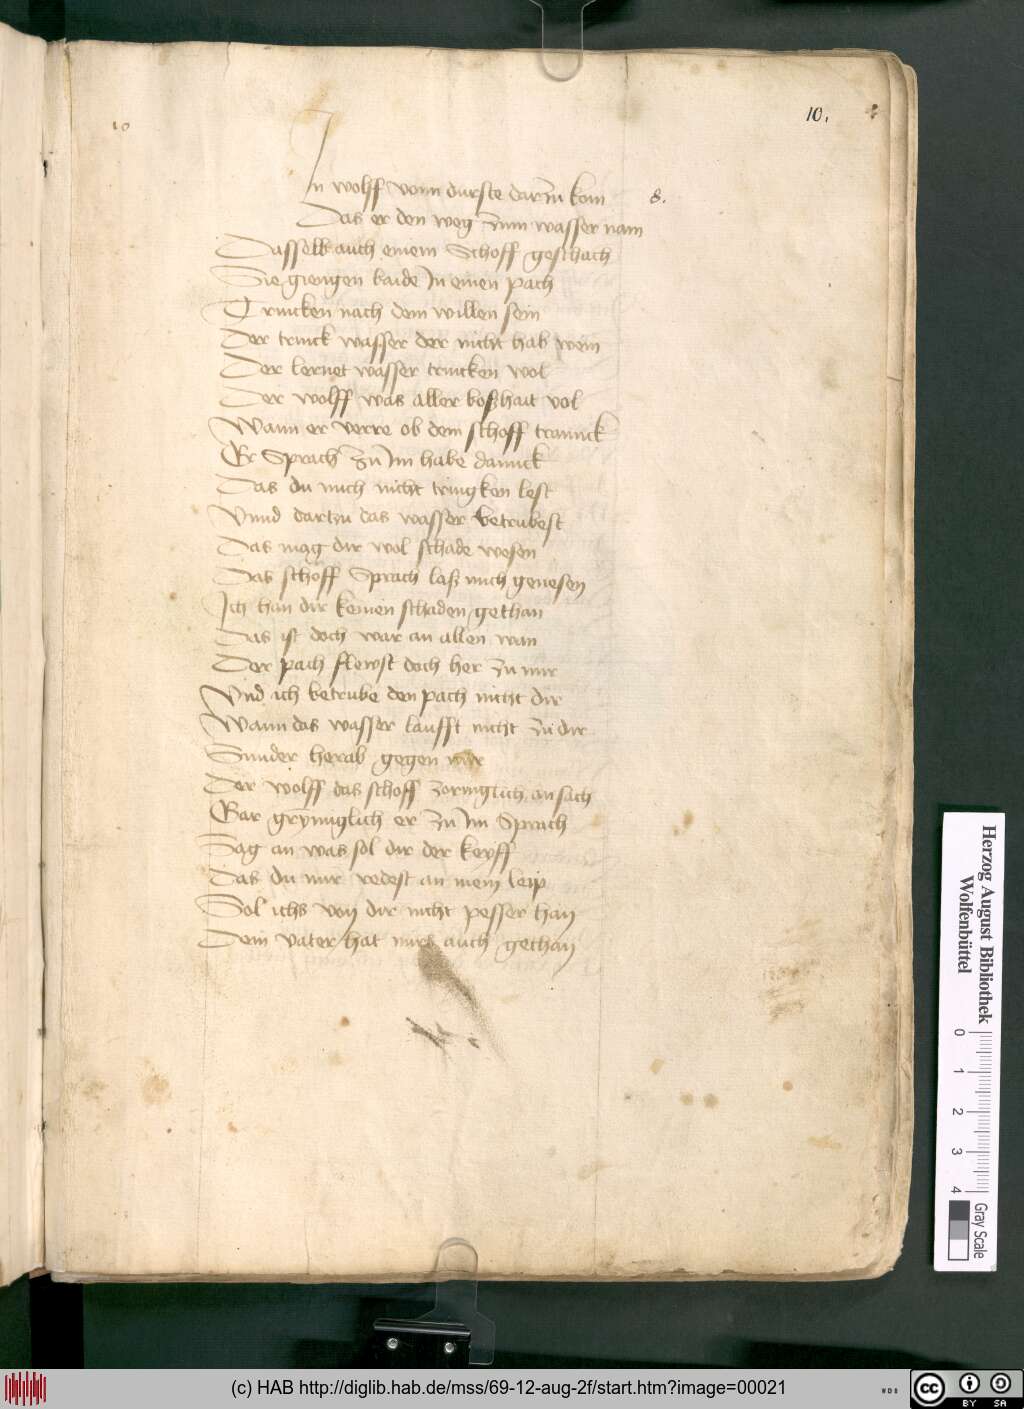 10
10.
In wolff vonn durste darzu kom 8.
Das er den weg zum wasser nam
Dasselb auch einem Schoff geschach
Sie giengen baide In einen pach
Trincken nach dem willen sein
Der trinck wasser der nicht hab wein
Der lernet wasser trincken wol
Der wolff was aller boßhait vol
Wann er verre ob dem schoff trannck
Er Sprach zu Im habe dannck
Das du mich nicht tringken lest
Vnnd dartzu das wasser betrubest
Das mag dir wol schade wesen
Das schoff Sprach laß mich genesen
Ich han dir keinen schaden gethan
Das ist doch war an allen wan
Der pach flewst doch her zu mir
Vnd ich betrube den pach nicht dir
Wann das wasser laufft nicht zu dir
Sunder herab gegen mir
Der wolff das schoff zorniglich an sach
Gar grymiglich er zu Im Sprach
Sag an was sol dir der keyff
Das du mir redest an mein leip
Sol ichs von dir nicht pesser han
Dein vater hat mirs auch gethan
Herzog August Bibliothek
Wolfenbüttel
0 1 2 3 4
Gray Scale
(c) HAB http://diglib.hab.de/mss/69-12-aug-2f/start.htm?image=00021
WDB
cc BY SA